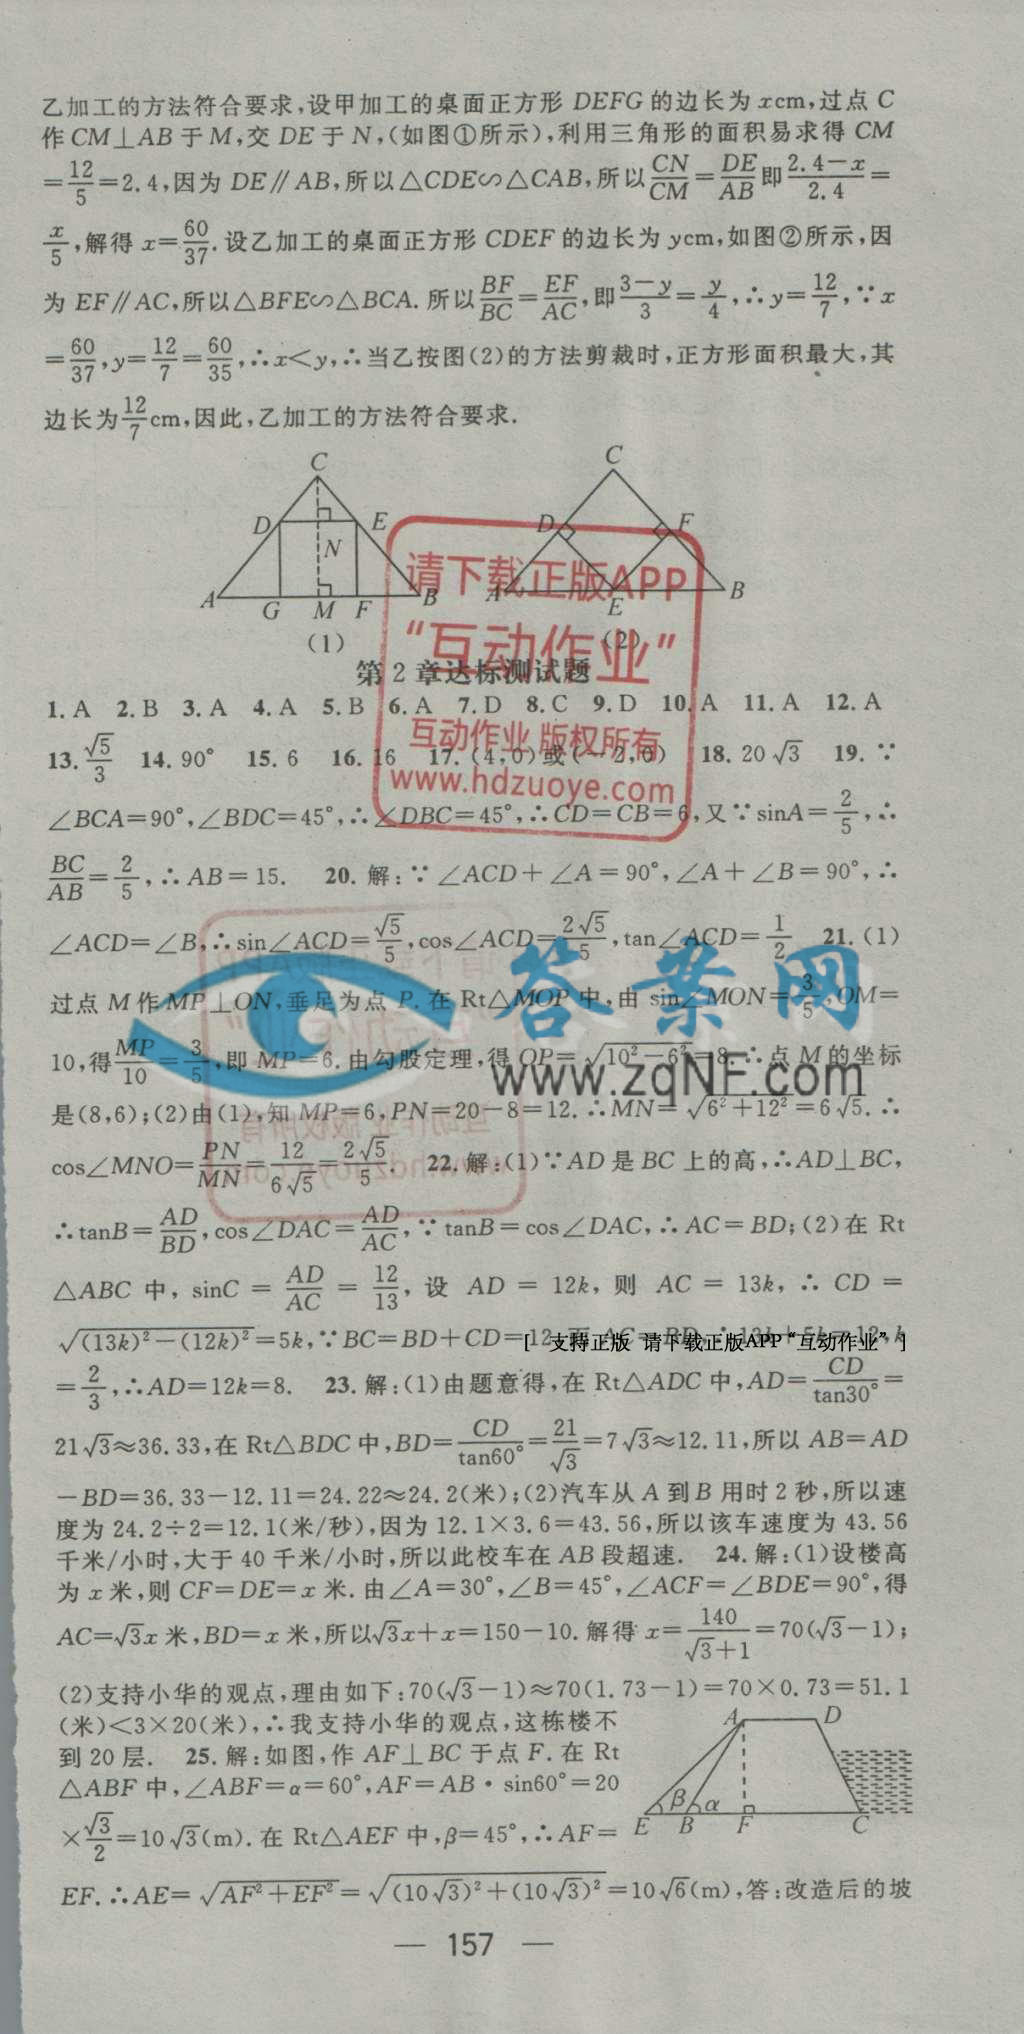 乙加工的方法符合要求,设甲加工的桌面正方形 DEFG 的边长为 xcm,过点 C
作 CM⊥AB 于 M,交 DE 于 N,(如图①所示),利用三角形的面积易求得 CM
=12/5=2.4,因为 DE∥AB,所以△CDE∽△CAB,所以CN/CM=DE/AB即(2.4-x)/2.4=
x/5,解得 x=60/37.设乙加工的桌面正方形 CDEF 的边长为 ycm,如图②所示,因
为 EF∥AC,所以△BFE∽△BCA.所以BF/BC=EF/AC,即(3-y)/3=y/4,∴y=12/7,∵x
=60/37,y=12/7=60/35,∴x<y,∴当乙按图(2)的方法剪裁时,正方形面积最大,其
边长为12/7cm,因此,乙加工的方法符合要求.
C
D E
N
A G M F B
(1)
C
D F
A E B
(2)
请下载正版APP
“互动作业”
互动作业 版权所有
www.hdzuoye.com
第2章达标测试题
1. A 2. B 3. A 4. A 5. B 6. A 7. D 8. C 9. D 10. A 11. A 12. A
13. √5/3 14. 90° 15. 6 16. 16 17. (4,0)或(-2,0) 18. 20√3 19. ∵
∠BCA=90°,∠BDC=45°,∴∠DBC=45°,∴CD=CB=6,又∵sinA=2/5,∴
BC/AB=2/5,∴AB=15. 20. 解:∵∠ACD+∠A=90°,∠A+∠B=90°,∴
∠ACD=∠B,∴sin∠ACD=√5/5,cos∠ACD=2√5/5,tan∠ACD=1/2 21. (1)
过点 M 作 MP⊥ON,垂足为点 P.在 Rt△MOP 中,由 sin∠MON=3/5,OM=
10,得MP/10=3/5,即 MP=6.由勾股定理,得 OP=√(10²-6²)=8.∴点 M 的坐标
是(8,6);(2)由(1),知 MP=6,PN=20-8=12.∴MN=√(6²+12²)=6√5.∴
cos∠MNO=PN/MN=12/(6√5)=2√5/5. 22. 解:(1)∵AD 是 BC 上的高,∴AD⊥BC,
答案网
www.zqNF.com
∴tanB=AD/BD,cos∠DAC=AD/AC,∵tanB=cos∠DAC,∴AC=BD;(2)在 Rt
△ABC 中,sinC=AD/AC=12/13,设 AD=12k,则 AC=13k,∴CD=
√((13k)²-(12k)²)=5k,∵BC=BD+CD=12,而 AC=BD,∴13k+5k=12,k
[ 支持正版 请下载正版APP“互动作业” ]
=2/3,∴AD=12k=8. 23. 解:(1)由题意得,在 Rt△ADC 中,AD=CD/tan30°=
21√3≈36.33,在 Rt△BDC 中,BD=CD/tan60°=21/√3=7√3≈12.11,所以 AB=AD
-BD=36.33-12.11=24.22≈24.2(米);(2)汽车从 A 到 B 用时 2 秒,所以速
度为 24.2÷2=12.1(米/秒),因为 12.1×3.6=43.56,所以该车速度为 43.56
千米/小时,大于 40 千米/小时,所以此校车在 AB 段超速. 24. 解:(1)设楼高
为 x 米,则 CF=DE=x 米.由∠A=30°,∠B=45°,∠ACF=∠BDE=90°,得
AC=√3x 米,BD=x 米,所以√3x+x=150-10.解得 x=140/(√3+1)=70(√3-1);
(2)支持小华的观点,理由如下:70(√3-1)≈70(1.73-1)=70×0.73=51.1
(米)<3×20(米),∴我支持小华的观点,这栋楼不
到20层. 25. 解:如图,作 AF⊥BC 于点 F.在 Rt
△ABF 中,∠ABF=α=60°,AF=AB·sin60°=20
×√3/2=10√3(m).在 Rt△AEF 中,β=45°,∴AF=
A D
β α
E B F C
EF.∴AE=√(AF²+EF²)=√((10√3)²+(10√3)²)=10√6(m),答:改造后的坡
— 157 —